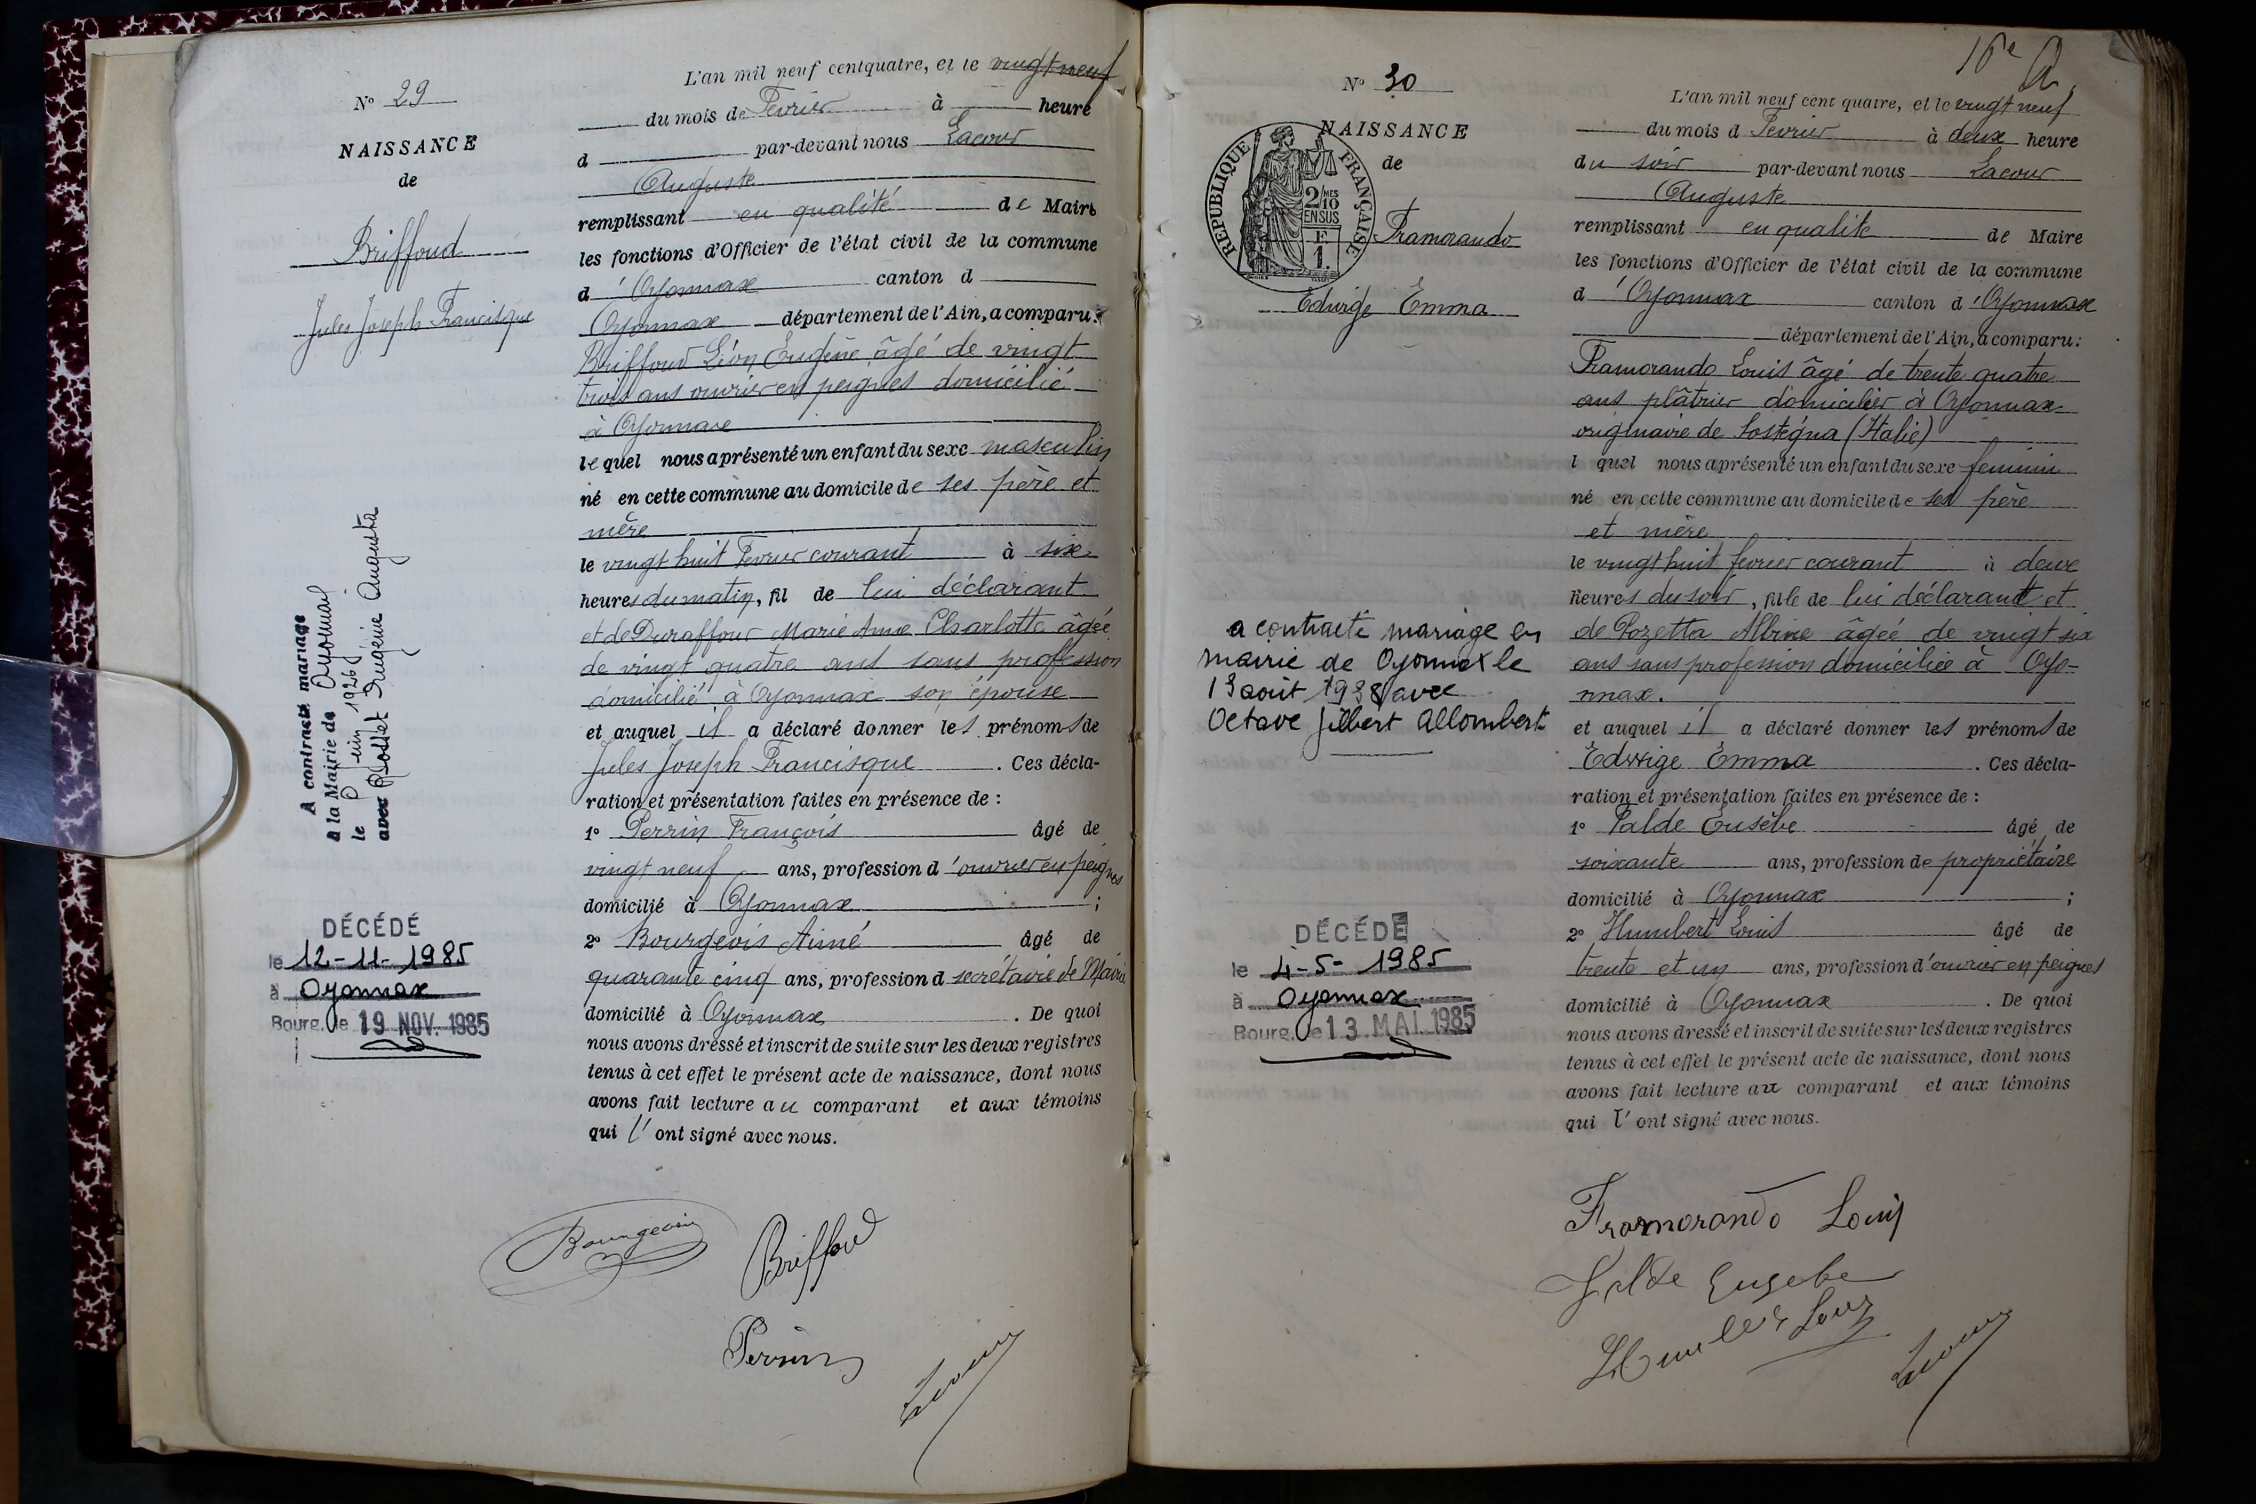 N° 29
NAISSANCE
de
Briffoud
Jules Joseph Francisque
A contracté mariage
à la Mairie de Oyonnax
le 1926
avec Eugénie Augusta
DÉCÉDÉ
le 12-11-1985
à Oyonnax
Bourg, le 19 NOV. 1985
L'an mil neuf cent quatre, et le vingt neuf
du mois de Fevrier à heure
d par-devant nous Lacour
Auguste
remplissant en qualité de Maire
les fonctions d'Officier de l'état civil de la commune
d'Oyonnax canton d
Oyonnax département de l'Ain, a comparu:
Briffoud Léon Eugène âgé de vingt
trois ans ouvrier en peignes domicilié
à Oyonnax
lequel nous a présenté un enfant du sexe masculin
né en cette commune au domicile de ses père et
mère
le vingt huit Fevrier courant à six
heures du matin, fil de lui déclarant
et de Duraffour Marie Anne Charlotte âgée
de vingt quatre ans sans profession
domicilié à Oyonnax son épouse
et auquel il a déclaré donner les prénoms de
Jules Joseph Francisque . Ces décla-
ration et présentation faites en présence de :
1° Perrin François âgé de
vingt neuf ans, profession d'ouvrier en peignes
domicilié à Oyonnax ;
2° Bourgeois Aimé âgé de
quarante cinq ans, profession d secrétaire de Mairie
domicilié à Oyonnax . De quoi
nous avons dressé et inscrit de suite sur les deux registres
tenus à cet effet le présent acte de naissance, dont nous
avons fait lecture au comparant et aux témoins
qui l'ont signé avec nous.
Bourgeois
Briffoud
Perrin
Lacour
16e
N° 30
NAISSANCE
de
RÉPUBLIQUE FRANÇAISE
2/10 MES
EN SUS
F.
1.
Framorando
Edwige Emma
a contracté mariage en
mairie de Oyonnax le
13 août 1938 avec
Octave Gilbert Allombert
DÉCÉDÉ
le 4-5-1985
à Oyonnax
Bourg, le 13 MAI 1985
L'an mil neuf cent quatre, et le vingt neuf
du mois d Fevrier à deux heure
du soir par-devant nous Lacour
Auguste
remplissant en qualité de Maire
les fonctions d'Officier de l'état civil de la commune
d'Oyonnax canton d'Oyonnax
département de l'Ain, a comparu:
Framorando Louis âgé de trente quatre
ans plâtrier domicilier à Oyonnax
originaire de Sostegna (Italie)
l quel nous a présenté un enfant du sexe feminin
né en cette commune au domicile de ses père
et mère
le vingt huit fevrier courant à deux
heures du soir, fille de lui déclarant et
de Pozetta Albine âgée de vingt six
ans sans profession domiciliée à Oyo-
nnax.
et auquel il a déclaré donner les prénoms de
Edwige Emma . Ces décla-
ration et présentation faites en présence de :
1° Jalde Eusèbe âgé de
soixante ans, profession de propriétaire
domicilié à Oyonnax ;
2° Humbert Louis âgé de
trente et un ans, profession d'ouvrier en peignes
domicilié à Oyonnax . De quoi
nous avons dressé et inscrit de suite sur les deux registres
tenus à cet effet le présent acte de naissance, dont nous
avons fait lecture au comparant et aux témoins
qui l'ont signé avec nous.
Framorando Louis
Jalde Eugebe
Humbert Louis
Lacour